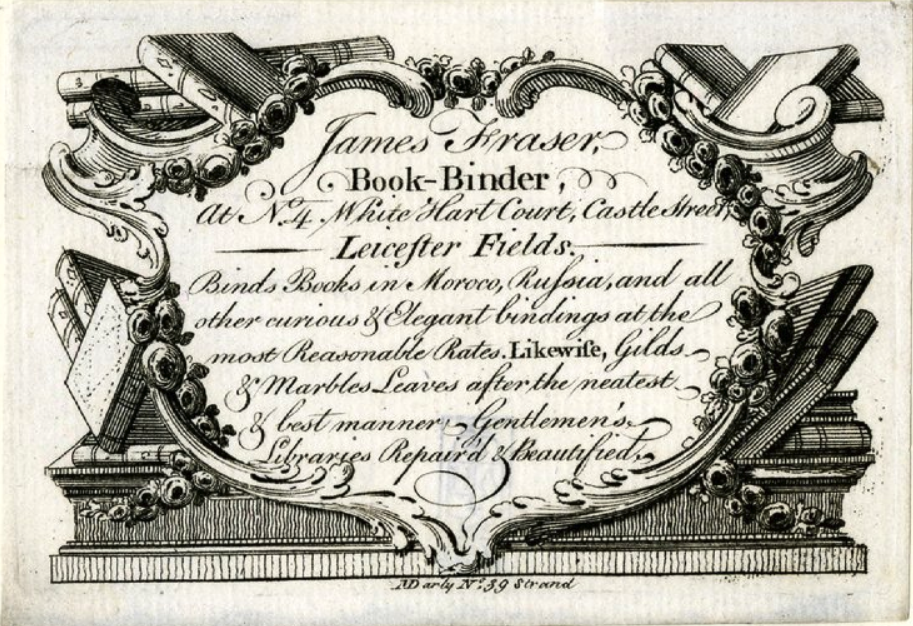 James Fraser,
Book-Binder,
At No. 4 White Hart Court, Castle Street,
Leiceſter Fields.
Binds Books in Moroco, Ruſsia, and all
other curious & Elegant bindings at the
most Reasonable Rates. Likewiſe, Gilds
& Marbles Leaves after the neatest
& best manner; Gentlemen's
Libraries Repair'd & Beautified.
MDarly No. 39 Strand